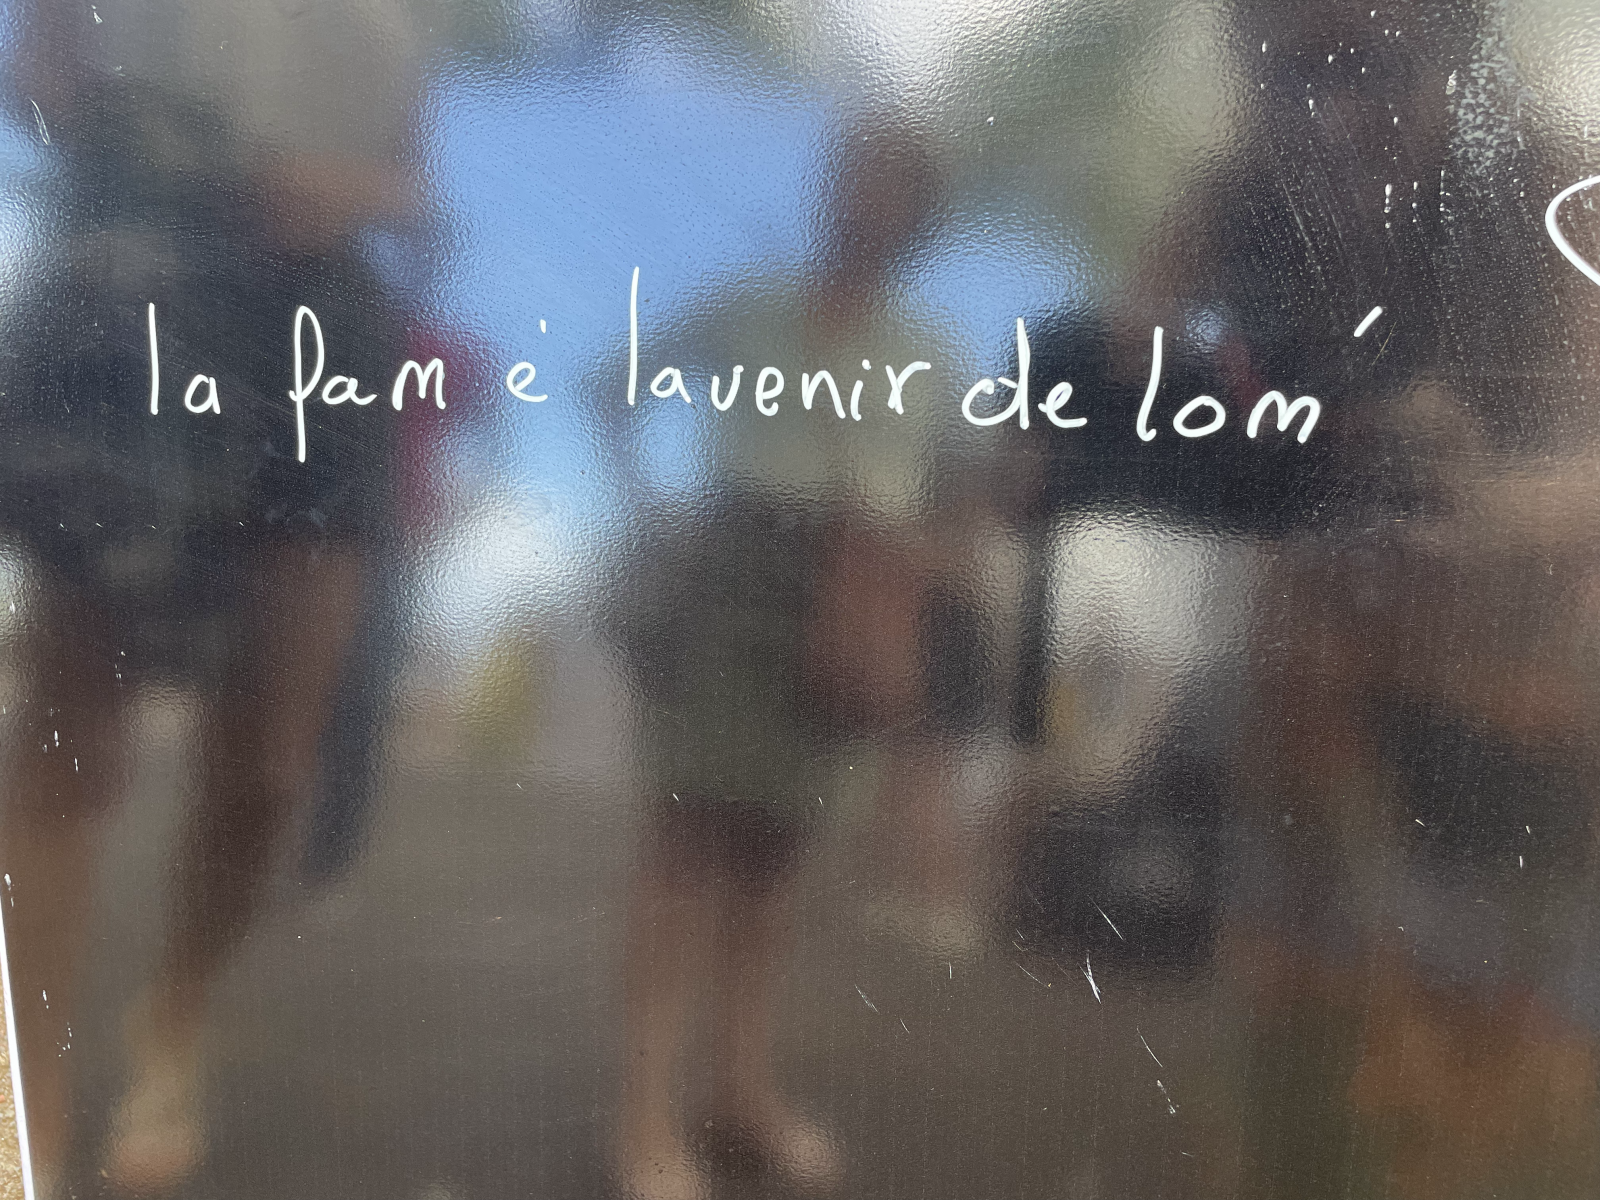 la fam é lavenir de lom'